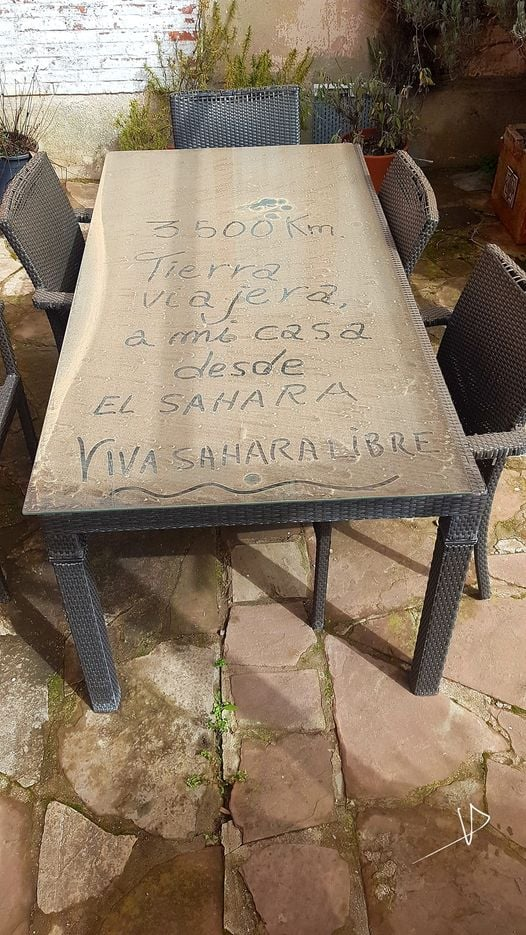 3.500 Km.
Tierra
viajera,
a mi casa
desde
EL SAHARA
VIVA SAHARA LIBRE